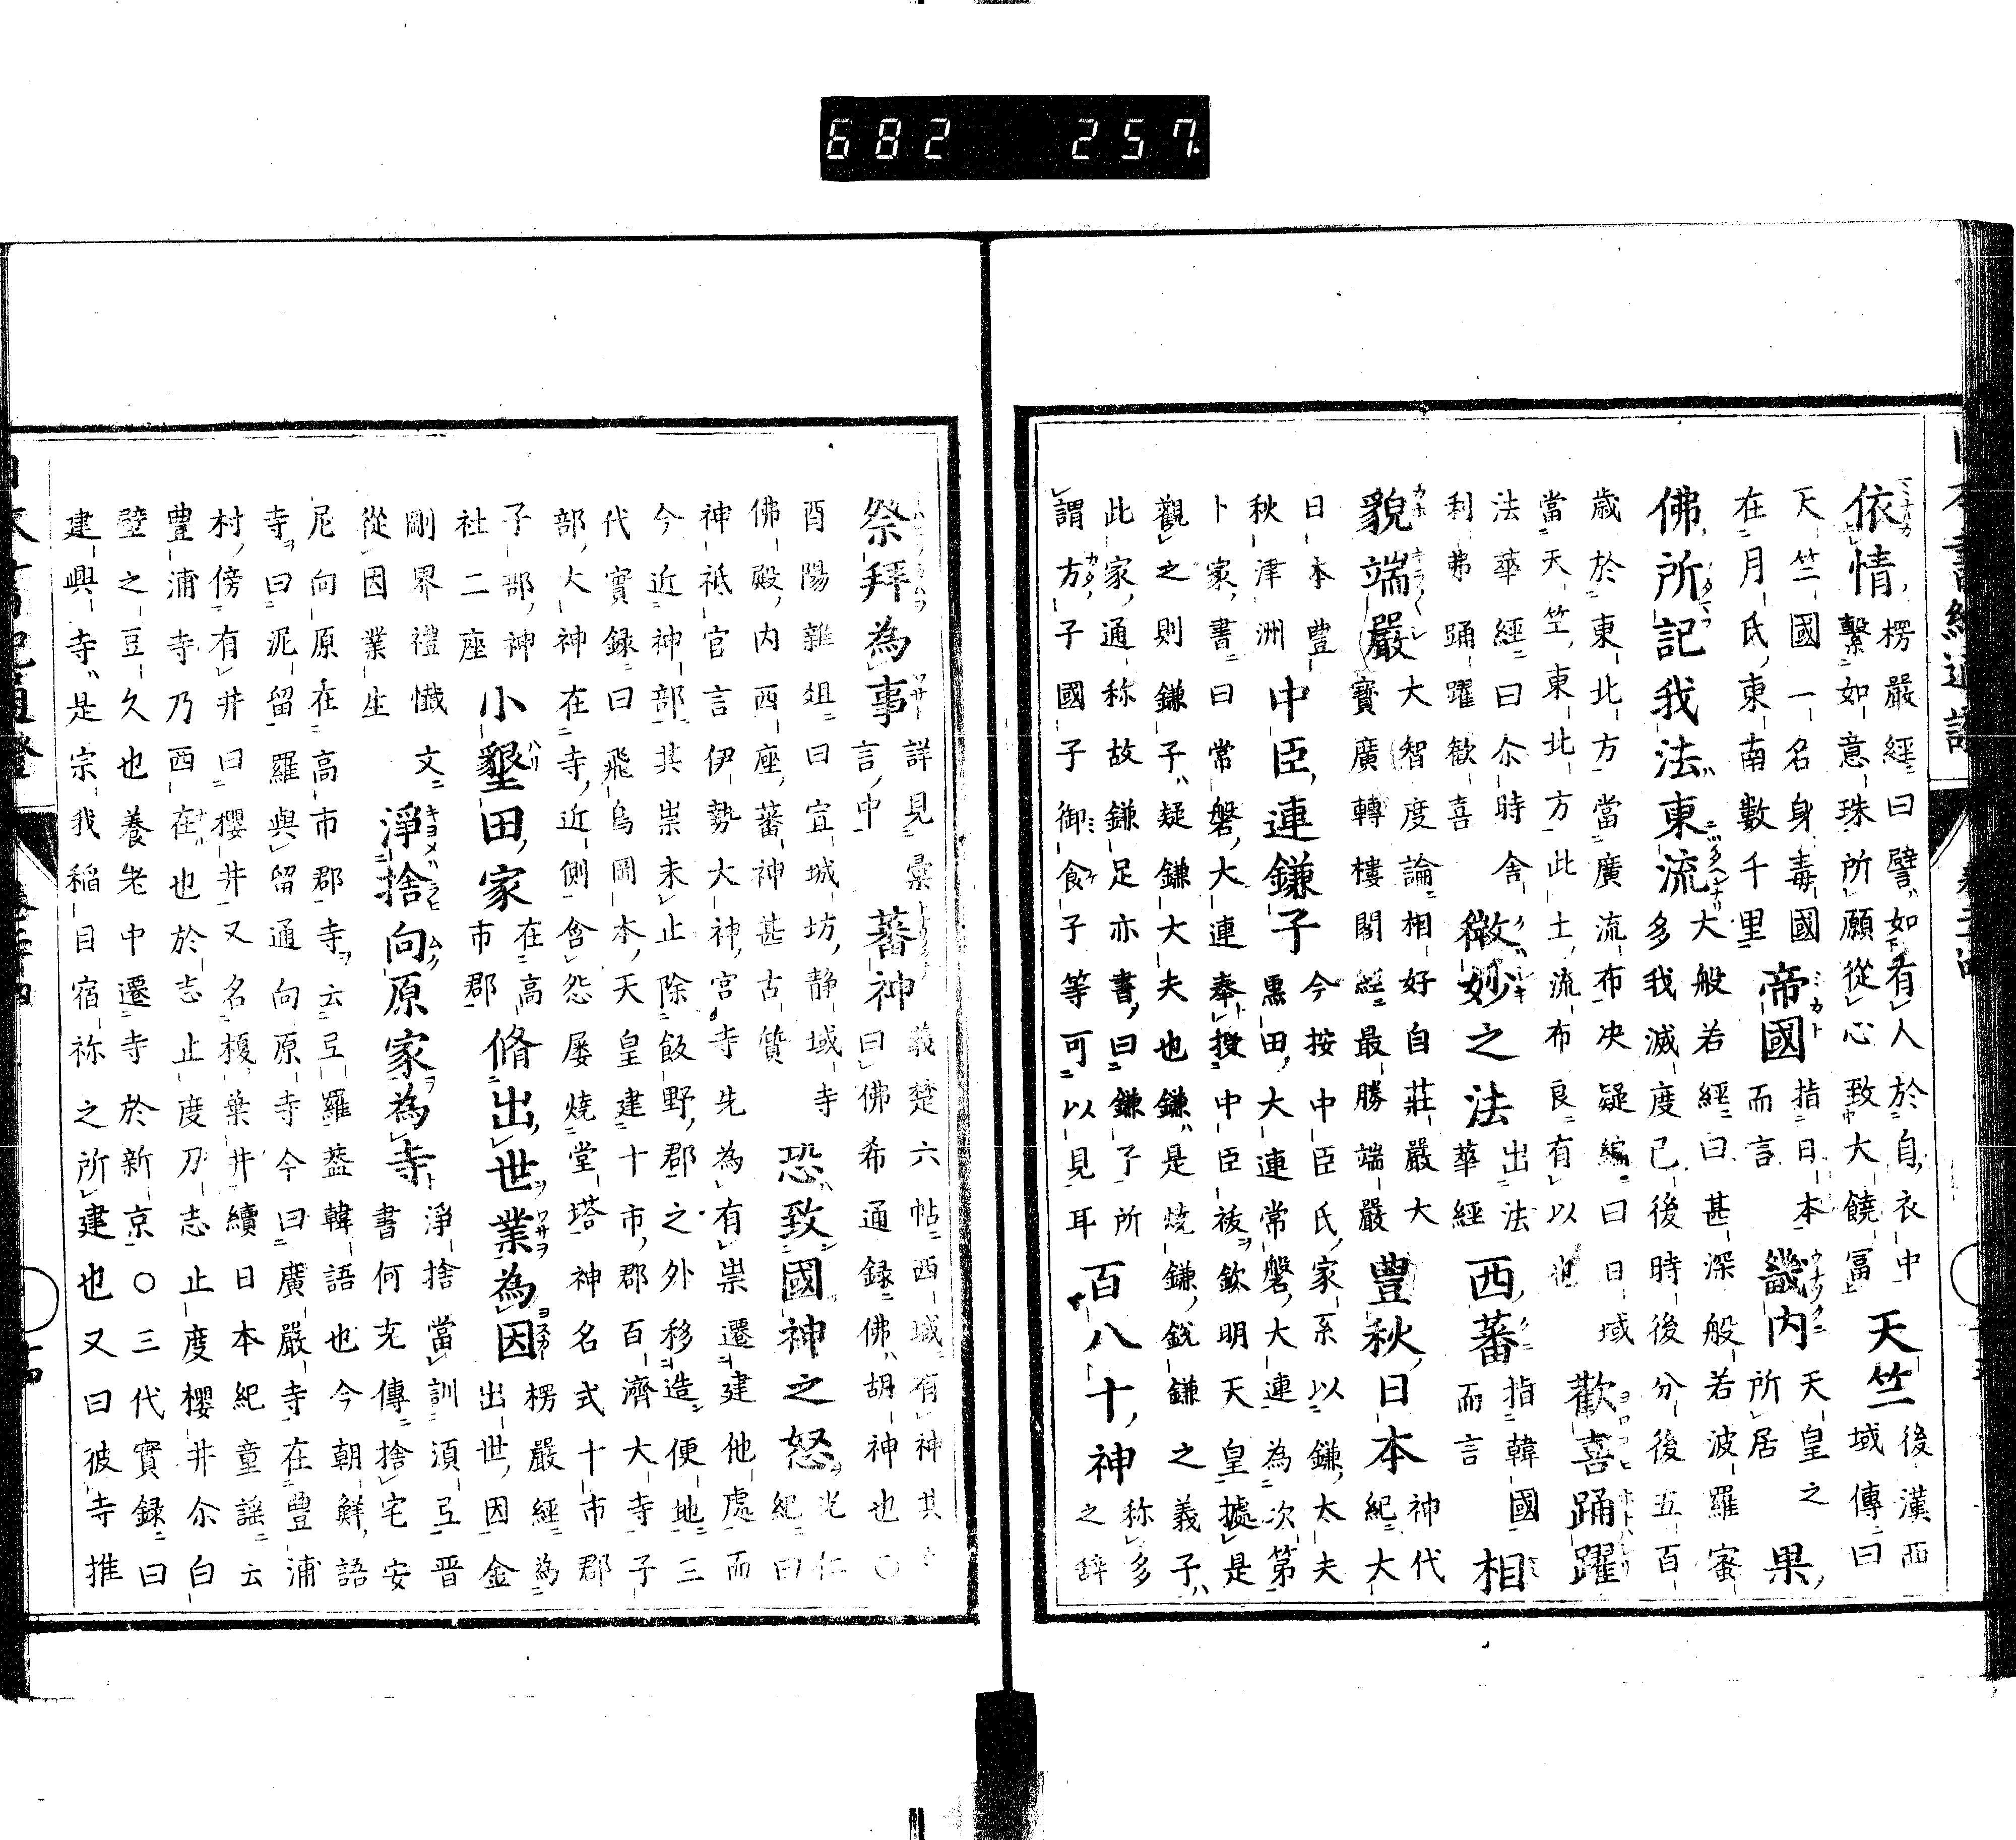 依情楞嚴經曰譬如有人於自衣中繫如意珠所願從心致大饒冨天竺後漢西域傳曰
天竺國一名身毒國在月氏東南數千里帝國指日本而言畿内天皇之所居果
佛所記我法東流大般若經曰甚深般若波羅蜜多我滅度已後時後分後五百
歳於東北方當廣流布决疑編曰日域當天竺東北方此土流布良有以也歡喜踊躍
法華經曰尒時舎利弗踊躍歡喜微妙之法出法華經西蕃指韓國而言相
貌端嚴大智度論相好自莊嚴大寳廣轉樓閣經最勝端嚴豊秋日本神代紀大
日本豊秋津洲中臣連鎌子今按中臣氏家系以鎌大夫黒田大連常磐大連為次第
卜家書曰常磐大連奉授中臣祓欽明天皇據是觀之則鎌子疑鎌大夫也鎌是焼鎌鋭鎌之義子
此家通称故鎌足亦書曰鎌子所謂方子國子御食子等可以見耳百八十神称多之辞
祭拜為事詳見彙言中蕃神義楚六帖西域有神其曰佛希通録佛胡神也○
酉陽雜俎曰宜城坊静域寺佛殿内西座蕃神甚古質恐致國神之怒光仁紀曰
神祇官言伊勢大神宮寺先為有祟遷建他處而今近神郡其祟未止除飯野郡之外移造便地三
代實録曰飛鳥岡本天皇建十市郡百濟大寺子部大神在寺近側含怨屡焼堂塔神名式十市郡
子部神社二座小墾田家在高市郡脩出世業為因楞嚴經為出世因金
剛界禮懺文從因業生淨捨向原家為寺淨捨當訓須弖晋書何充傳捨宅安
尼向原在高市郡寺云弖羅葢韓語也今朝鮮語寺曰泥留羅與留通向原寺今曰廣嚴寺在豊浦
村傍有井曰櫻井又名榎葉井續日本紀童謡云豊浦寺乃西在也於志止度刀志止度櫻井尒白
壁之豆久也養老中遷寺於新京○三代實録曰建興寺是宗我稲目宿祢之所建也又曰彼寺推
682 257